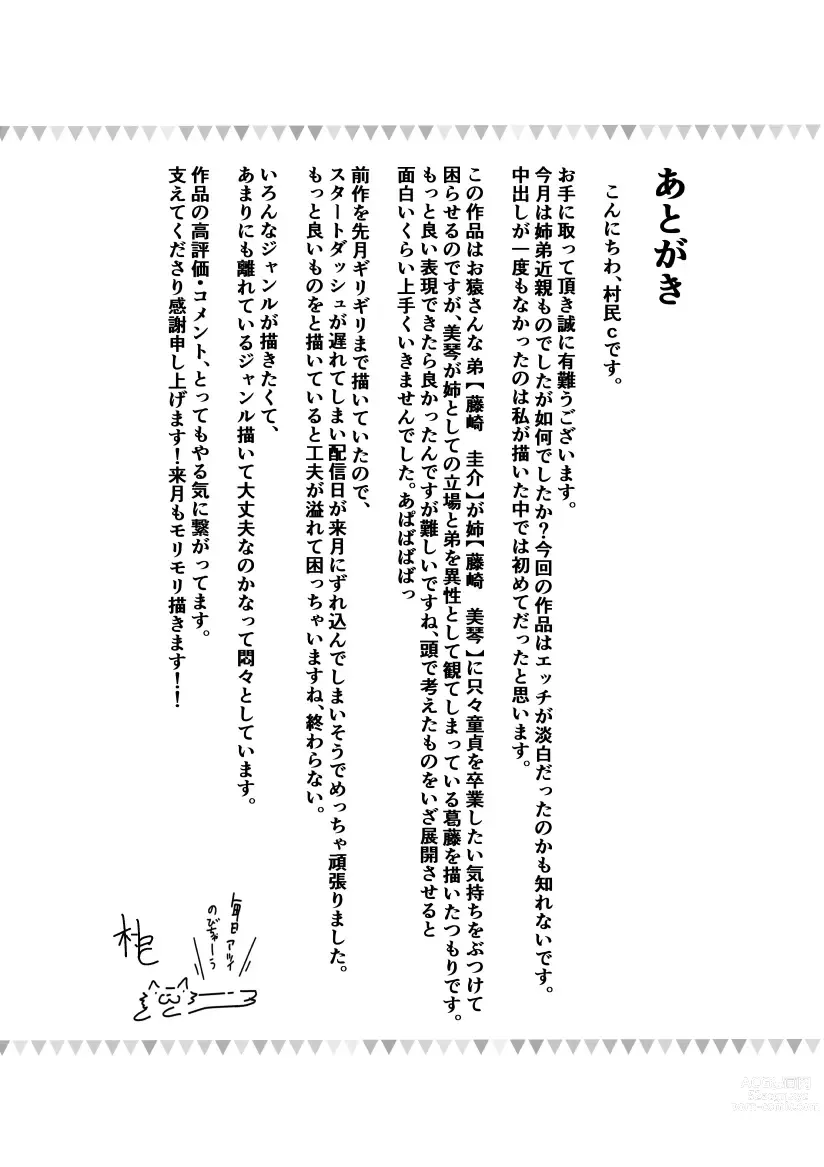 あとがき
こんにちわ、村民cです。
お手に取って頂き誠に有難うございます。
今月は姉弟近親ものでしたが如何でしたか？今回の作品はエッチが淡白だったのかも知れないです。
中出しが一度もなかったのは私が描いた中では初めてだったと思います。
この作品はお猿さんな弟【藤崎　圭介】が姉【藤崎　美琴】に只々童貞を卒業したい気持ちをぶつけて
困らせるのですが、美琴が姉としての立場と弟を異性として観てしまっている葛藤を描いたつもりです。
もっと良い表現できたら良かったんですが難しいですね、頭で考えたものをいざ展開させると
面白いくらい上手くいきませんでした。あばばばばっ
前作を先月ギリギリまで描いていたので、
スタートダッシュが遅れてしまい配信日が来月にずれ込んでしまいそうでめっちゃ頑張りました。
もっと良いものをと描いていると工夫が溢れて困っちゃいますね、終わらない。
いろんなジャンルが描きたくて、
あまりにも離れているジャンル描いて大丈夫なのかなって悶々としています。
作品の高評価・コメント、とってもやる気に繋がってます。
支えてくださり感謝申し上げます！来月もモリモリ描きます！！
毎日アツイ
のびちゃーう
村民